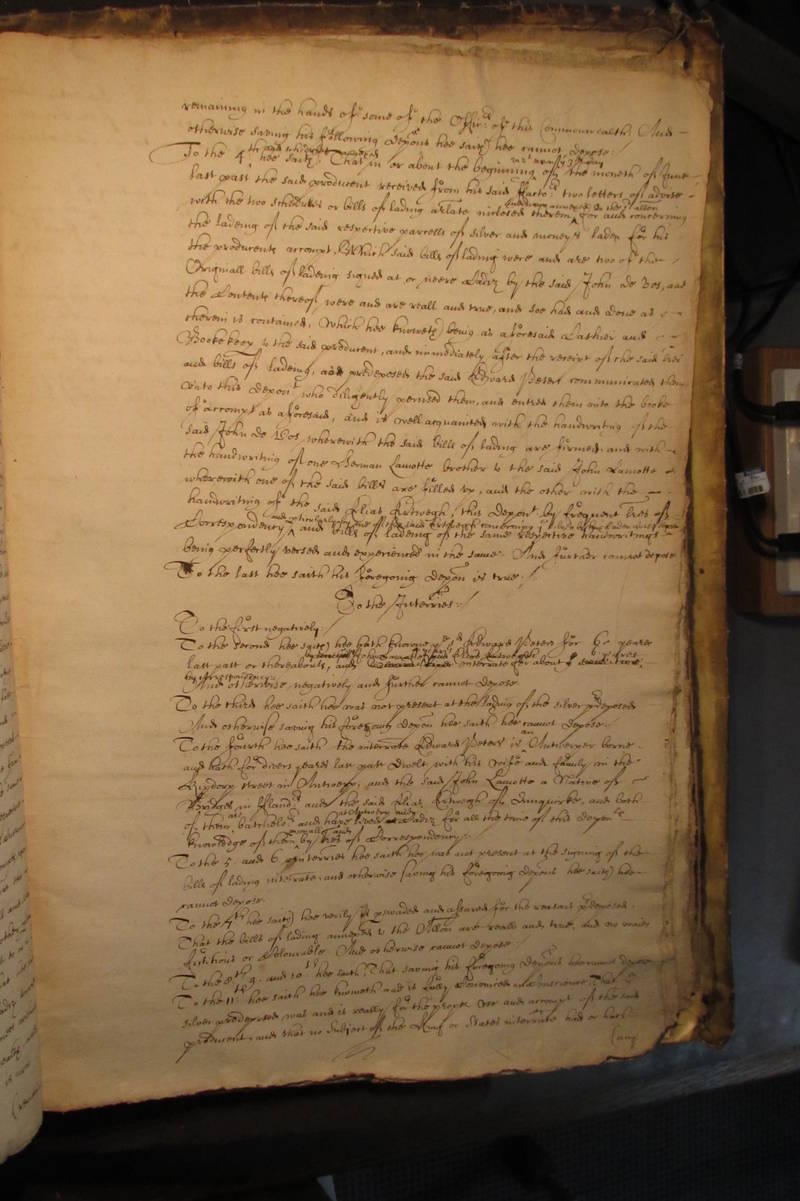 remaining in the hands of some of the Officrs of this Commonwealth. And
otherwise saving his following deposn hee saith hee cannot depose.
To the 4th and schedules annexed hee saith That in or about the beginning of the moneth of June
last past the said producent received from his said Factors two letters of advise
with the two schedules or bills of lading arlate inclosed therein, for and concerning
the ladeing of the said respective parcells of silver and moneys laden for his
the producents accompt, Which said bills of lading were and are two of the
Originall bills of ladeing signed at or neere Cadiz by the said John de Vos, and
the Contents thereof were and are reall and true, and soe had and done as
therein is contained, Which hee knoweth being as aforesaid Cashier and
Bookekeep to the said producent, and immediately after the receipt of the said lres
and bills of ladeing, as predeposed the said Edward Peters communicated them
unto this depont who diligently perused them, and entred them into the booke
of accompt as aforesaid, and is well acquainted with the handwriting of the
said John de Vos, wherewith the said bills of lading are firmed, and with
the handwriting of one Herman Lamotte brother to the said John Lamotte
wherewith one of the said bills are filled up, and the other with the
handwriting of the said Elias Entwegh, this depont by frequent lres of
Correspondency and bills of ladeing of the same respective handwritings
being perfectly versed and experienced in the same. And further cannot depose
To the last hee saith his foregoing deposn is true.
To the Interries.
To the first negatively.
To the second hee saith hee hath knowne the sd Edward Peters for 6 yeares
last past or thereabouts, and interrate for about 6 yeares
by correspondency
And otherwise negatively and further cannot depose
To the third hee saith hee was not present at the lading of the silver predeposed
And otherwise saving his foregoing deposn hee saith hee cannot depose.
To the fourth hee saith the interrate Edward Peters is an Antwerper borne
and hath for divers yeares last past dwelt with his wife and family in the
street in Antwerp, and the said John Lamotte a Native of
Bridges in Flandrs and the said Elias Entwegh of Dunquirke, and both
of them are batchelrs and have lived at Cadiz for all the time of this deponts
knowledge of them by lres of Correspondency.
To the 5 and 6 Interries hee saith hee was not present at the signing of the
bills of lading interrate, and otherwise saving his foregoing deposns hee saith hee
cannot depose.
To the 7th hee saith hee verily is perswaded and assured for the reasons predeposed
That the bills of lading annexed to the Allon are reall and true, and no waies
fictitious or Colourable. And otherwise cannot depose.
To the 8th 9. and 10th hee saith That saving his foregoing deposns hee cannot depose
To the 11th hee saith hee knoweth and is fully Convinced in Conscience That the
silver predeposed was and is really for the proper use and accompt of the said
producent, and that no Subject of the King or States interrate had or hath
(any